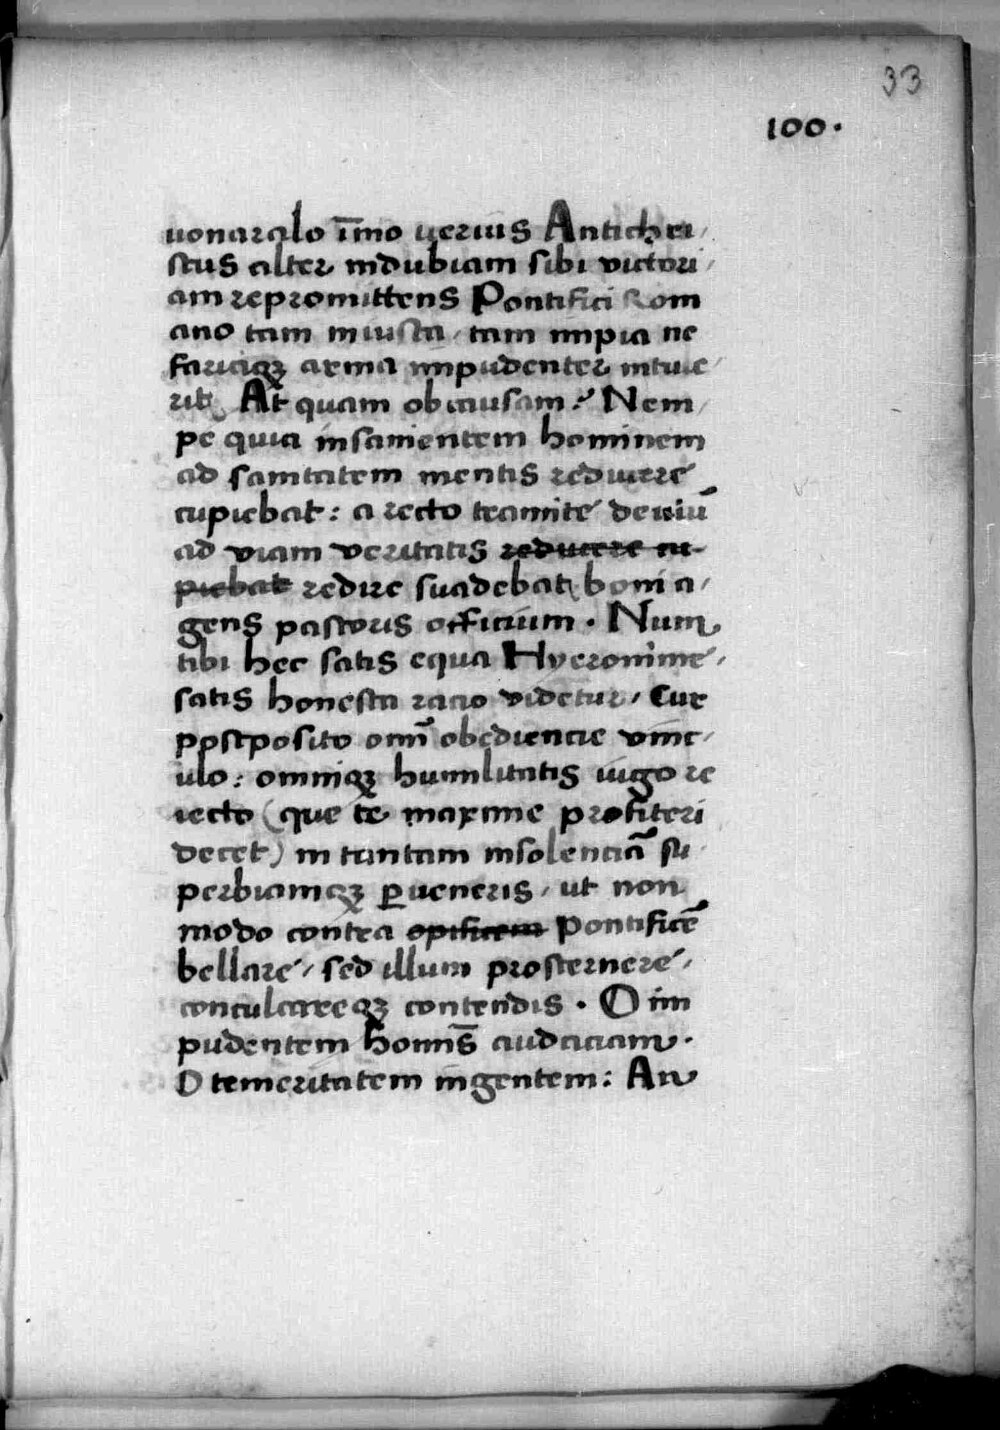 33
100.
uonarolo īmo uerius Antichri/
stus alter indubiam sibi victori/
am repromittens Pontifici Rom
ano tam iniusta / tam impia ne
fariaqꝫ arma impudenter intule/
rit. At quam ob causam? Nem/
pe quia insanientem hominem
ad sanitatem mentis reducere
cupiebat: a recto tramite deuiū
ad viam veritatis reducere cu-
piebat redire suadebat boni a/
gens pastoris officium. Num
tibi hec satis equa Hyeronime /
satis honesta racio videtur / Cur
postposito omī obediencie vinc/
ulo: omniqꝫ humilitatis iugo re
iecto (que te maxime profiteri
decet) in tantam insolenciā su
perbiamqꝫ ꝑueneris / ut non
modo contra opificem Pontificē
bellare / sed illum prosternere /
conculcareqꝫ contendis. O im
pudentem homīs audaciam.
O temeritatem ingentem: An